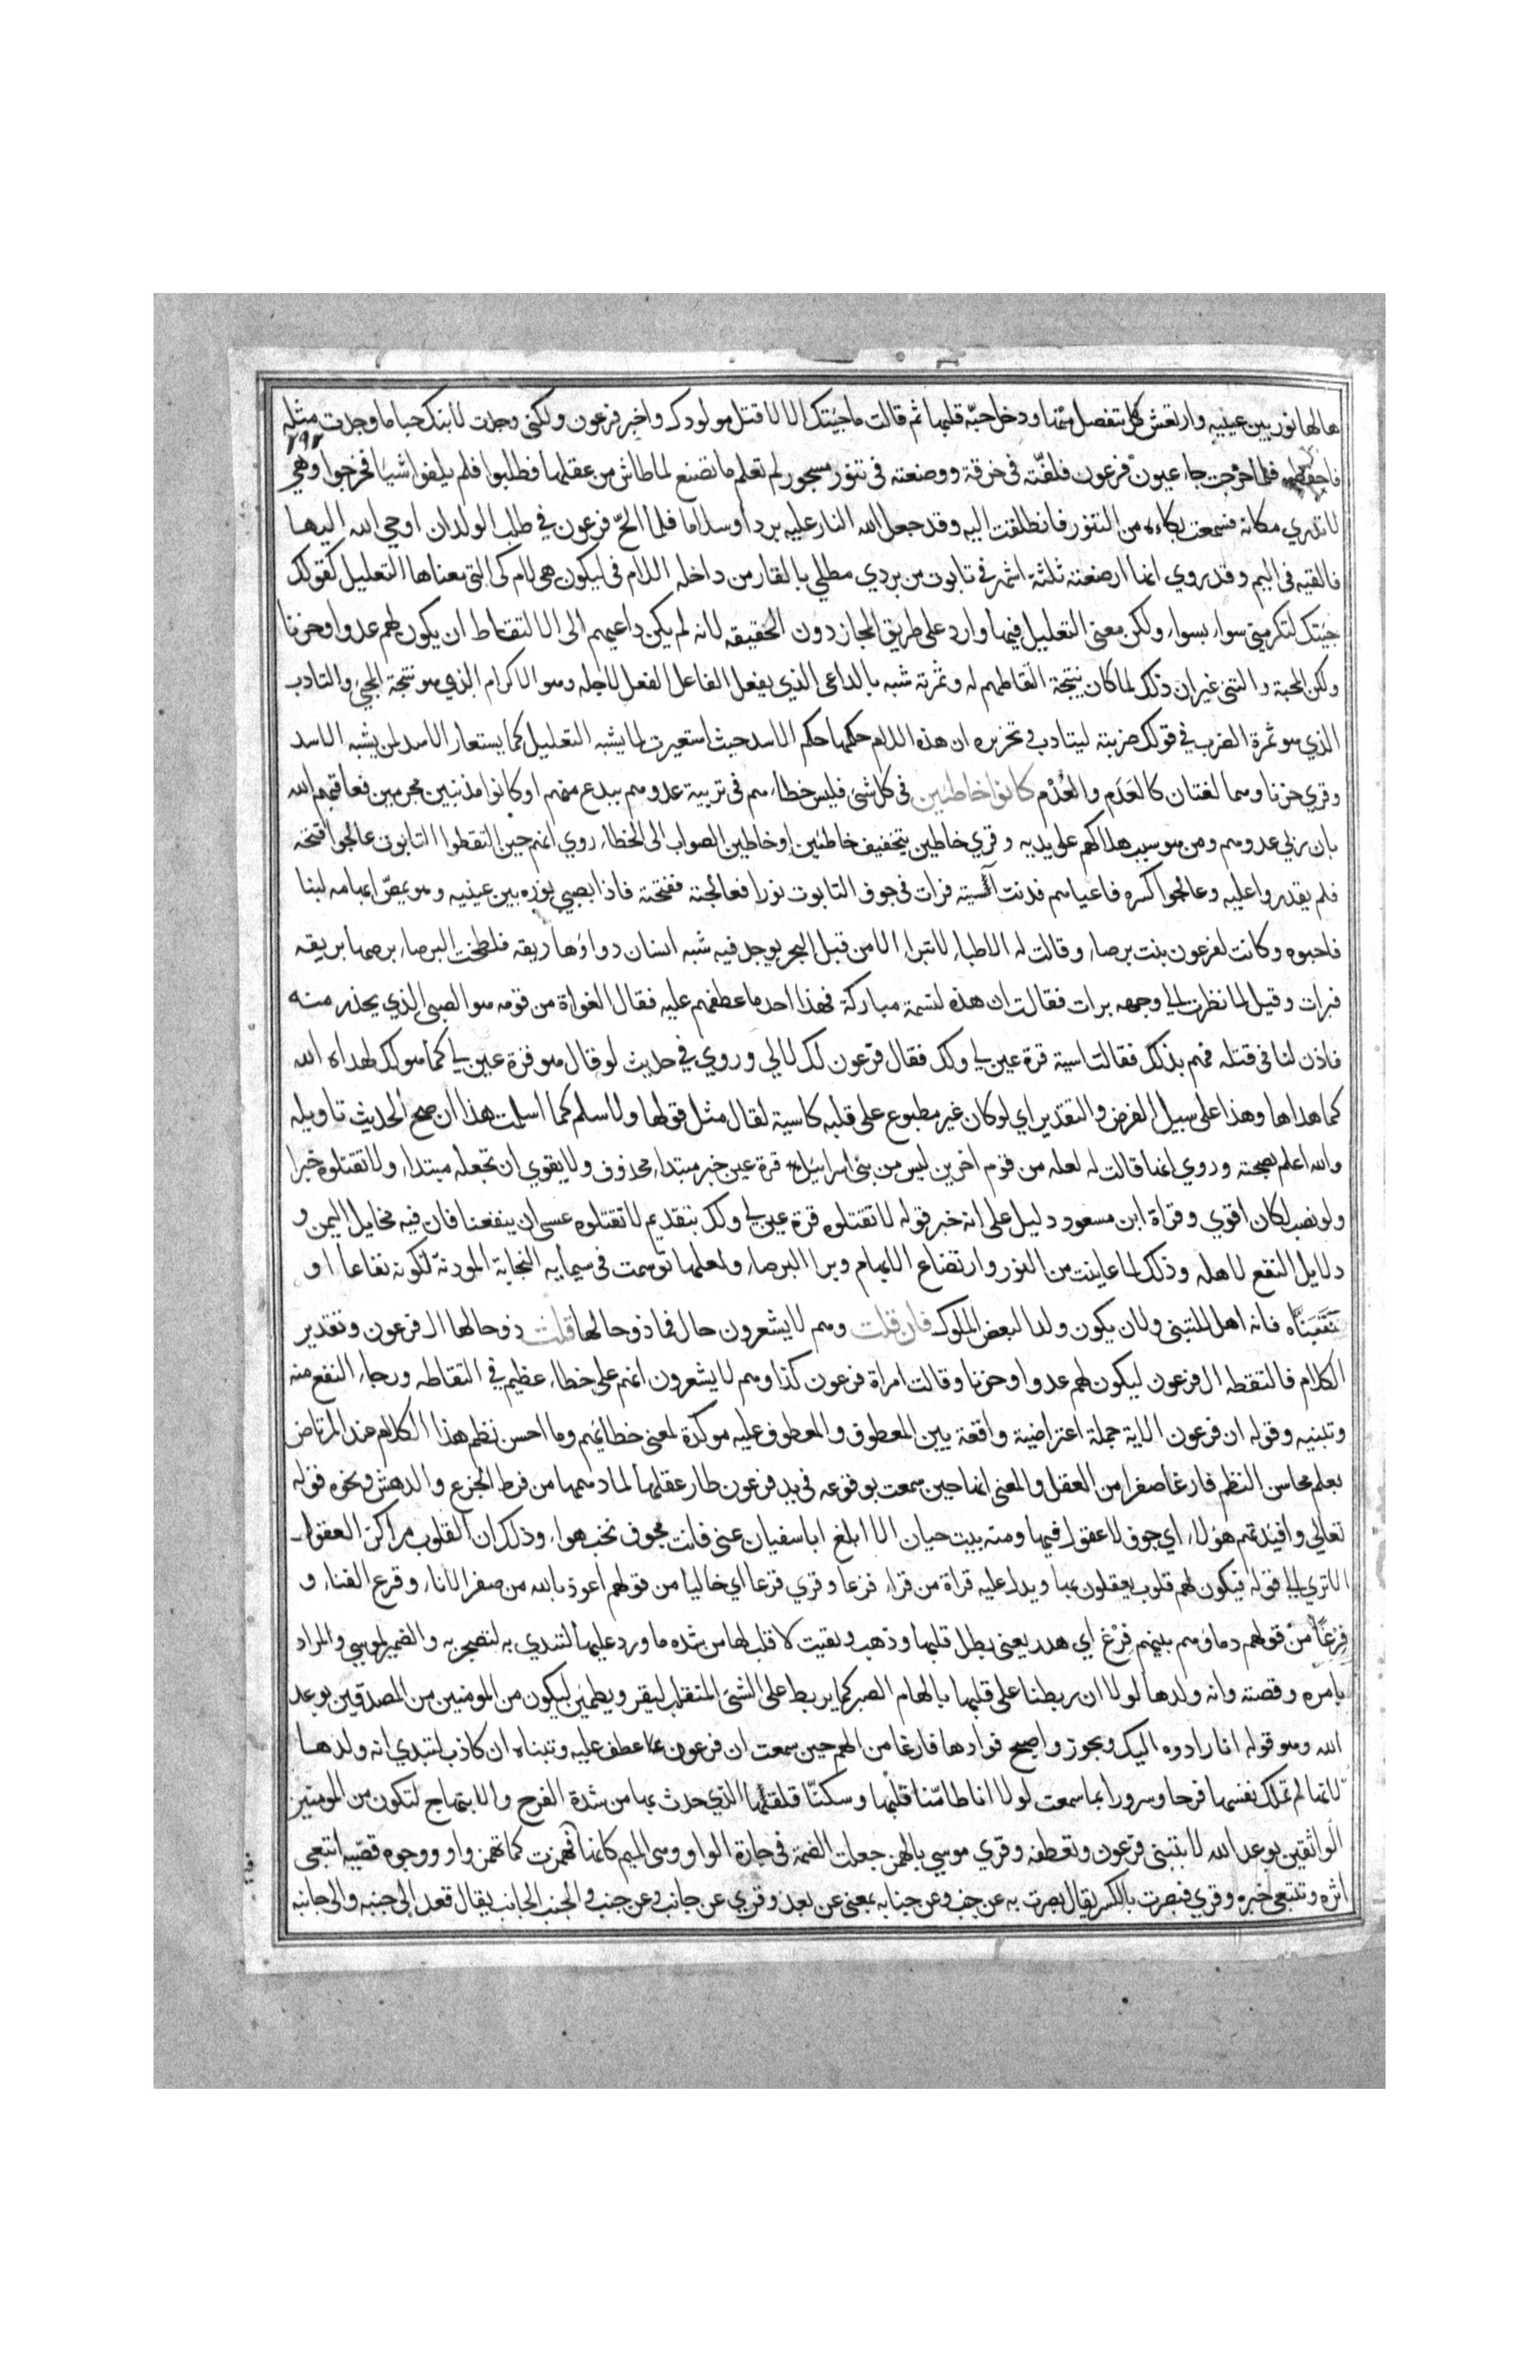 هالها نور بين عينيه وارتعش كل مفصل منها ودخل حبّه قلبها ثم قالت ما جئتك الا لاقتل مولودك واخبر فرعون ولكني وجدت لابنك حبا ما وجدت مثله
۲۹۲
فاحفظيه فلما خرجت جاء عيون فرعون فلفّته في خرقة ووضعته في تنور مسجور لم تعلم ما تصنع لما طاش من عقلها فطلبوا فلم يلفوا شيا فخرجوا وهي
لا تدري مكانه فسمعت بكاءه من التنور فانطلقت اليه وقد جعل الله النار عليه بردا وسلاما فلما الحّ فرعون في طلب الولدان اوحي الله اليها
فالقيه في اليم وقد روي انها ارضعته ثلثة اشهر في تابوت من بردي مطلي بالقار من داخله اللام في ليكون هي لام كي التي معناها التعليل كقولك
جئتك لتكرمني سواء بسواء ولكن معني التعليل فيها وارد علي طريق المجاز دون الحقيقه لانه لم يكن داعيهم الي الالتقاط ان يكون لهم عدوا وحزنا
ولكن المحبة والتبني غير ان ذلك لما كان نتيجة التقاطهم له وثمرته شبه بالداعي الذي يفعل الفاعل الفعل لاجله وهو الاكرام الذي هو نتيجة المجيء والتادب
الذي هو ثمرة الضرب في قولك ضربته ليتادب وتحريره ان هذه اللام حكمها حكم الاسد حيث استعيرت لما يشبه التعليل كما يستعار الاسد لمن يشبه الاسد
وقري حزنا وهما لغتان كالعَدَم والعُدْم كانوا خاطئين في كل شيء فليس خطاءهم في تربية عدوهم ببدع منهم او كانوا مذنبين مجرمين فعاقبهم الله
بان ربي عدوهم ومن هو سبب هلاكهم علي يديه وقري خاطين بتخفيف خاطئين او خاطين الصواب الي الخطاء روي انهم حين التقطوا التابوت عالجوا فتحه
فلم يقدروا عليه وعالجوا كسره فاعياهم فدنت آسية فرات في جوف التابوت نورا فعالجته ففتحته فاذا بصبي نوره بين عينيه وهو يمصّ ابهامه لبنا
فاحبوه وكانت لفرعون بنت برصاء وقالت له الاطباء لا تبرا الا من قبل البحر يوجد فيه شبه انسان دواؤها ريقه فلطخت البرصاء برصها بريقه
فبرات وقيل لما نظرت الي وجهه برات فقالت ان هذه لنسمة مباركة فهذا احد ما عطفهم عليه فقال الغواة من قومه هو الصبي الذي يحذر منه
فاذن لنا في قتله فهم بذلك فقالت اسية قرة عين لي ولك فقال فرعون لك لا لي وروي في حديث لو قال هو قرة عين لي كما هو لك لهداه الله
كما هداها وهذا علي سبيل الفرض والتقدير اي لو كان غير مطبوع علي قلبه كاسية لقال مثل قولها ولاسلم كما اسلمت هذا ان صح الحديث تاويله
والله اعلم بصحته وروي انها قالت له لعله من قوم اخرين ليس من بني اسرائيل قرة عين خبر مبتداء محذوف ولا يقوي ان تجعله مبتداء ولا تقتلوه خبرا
ولو نصب لكان اقوي وقراة ابن مسعود دليل علي انه خبر قوله لا تقتلوه قرة عين لي ولك بتقديم لا تقتلوه عسي ان ينفعنا فان فيه مخايل اليمن و
دلايل النفع لاهله وذلك لما عاينت من النور وارتضاع الابهام وبرا البرصاء ولعلها توسمت في سيمايه النجابة الموذنة لكونه نفاعا او
نتبنّاه فانه اهل للتبني ولان يكون ولدا لبعض الملوك فان قلت وهم لا يشعرون حال فما ذو حالها قلت ذو حالها ال فرعون وتقدير
الكلام فالتقطه ال فرعون ليكون لهم عدوا وحزنا وقالت امراة فرعون كذا وهم لا يشعرون انهم علي خطاء عظيم في التقاطه ورجاء النفع منه
وتبنيه وقوله ان فرعون الاية جملة اعتراضية واقعة بين المعطوف والمعطوف عليه موكدة لمعني خطائهم وما احسن نظم هذا الكلام عند المرتاض
بعلم محاسن النظم فارغا صفرا من العقل والمعني انها حين سمعت بوقوعه في يد فرعون طار عقلها لما دهمها من فرط الجزع والدهش ونحوه قوله
تعالي وافئدتهم هواء اي جوف لا عقول فيها ومنه بيت حسان الا ابلغ ابا سفيان عني فانت مجوف نخب هواء وذلك ان القلوب مراكز العقول
الا تري الي قوله فيكون لهم قلوب يعقلون بها ويدل عليه قراة من قراء فزعا وقري قرعا اي خاليا من قولهم اعوذ بالله من صفر الاناء وقرع الفناء و
فِرْغًا من قولهم دماؤهم بينهم فِرْغ اي هدر يعني بطل قلبها وذهب وبقيت لا قلب لها من شدة ما ورد عليها لتبدي به لتصحر به والضمير لموسي والمراد
بامره وقصته وانه ولدها لولا ان ربطنا علي قلبها بالهام الصبر كما يربط علي الشيء المتفلت ليقر ويطمئن ليكون من المومنين من المصدقين بوعد
الله وهو قوله انا رادوه اليك ويجوز واصبح فوادها فارغا من الهم حين سمعت ان فرعون عطف عليه وتبناه ان كاذب لتبدي انه ولدها
لانها لم تملك نفسها فرحا وسرورا بما سمعت لولا انا طامنّا قلبها وسكنّا قلقلها الذي حدث بها من شدة الفرح والابتهاج لتكون من المومنين
الواثقين بوعد الله لا بتبني فرعون وتعطفه وقري موسي بالهمز جعلت الضمة في جارة الواو وهي الميم كانها فيها فهمزت كما تهمز واو ووجوه قصّيه اتبعي
اثره وتتبعي خبره وقري فبصرت بالكسر يقال بصرت به عن جنب وعن جنابه بمعني عن بعد وقري عن جانب وعن جنب والجنب الجانب يقال قعد الي جنبه والي جانبه